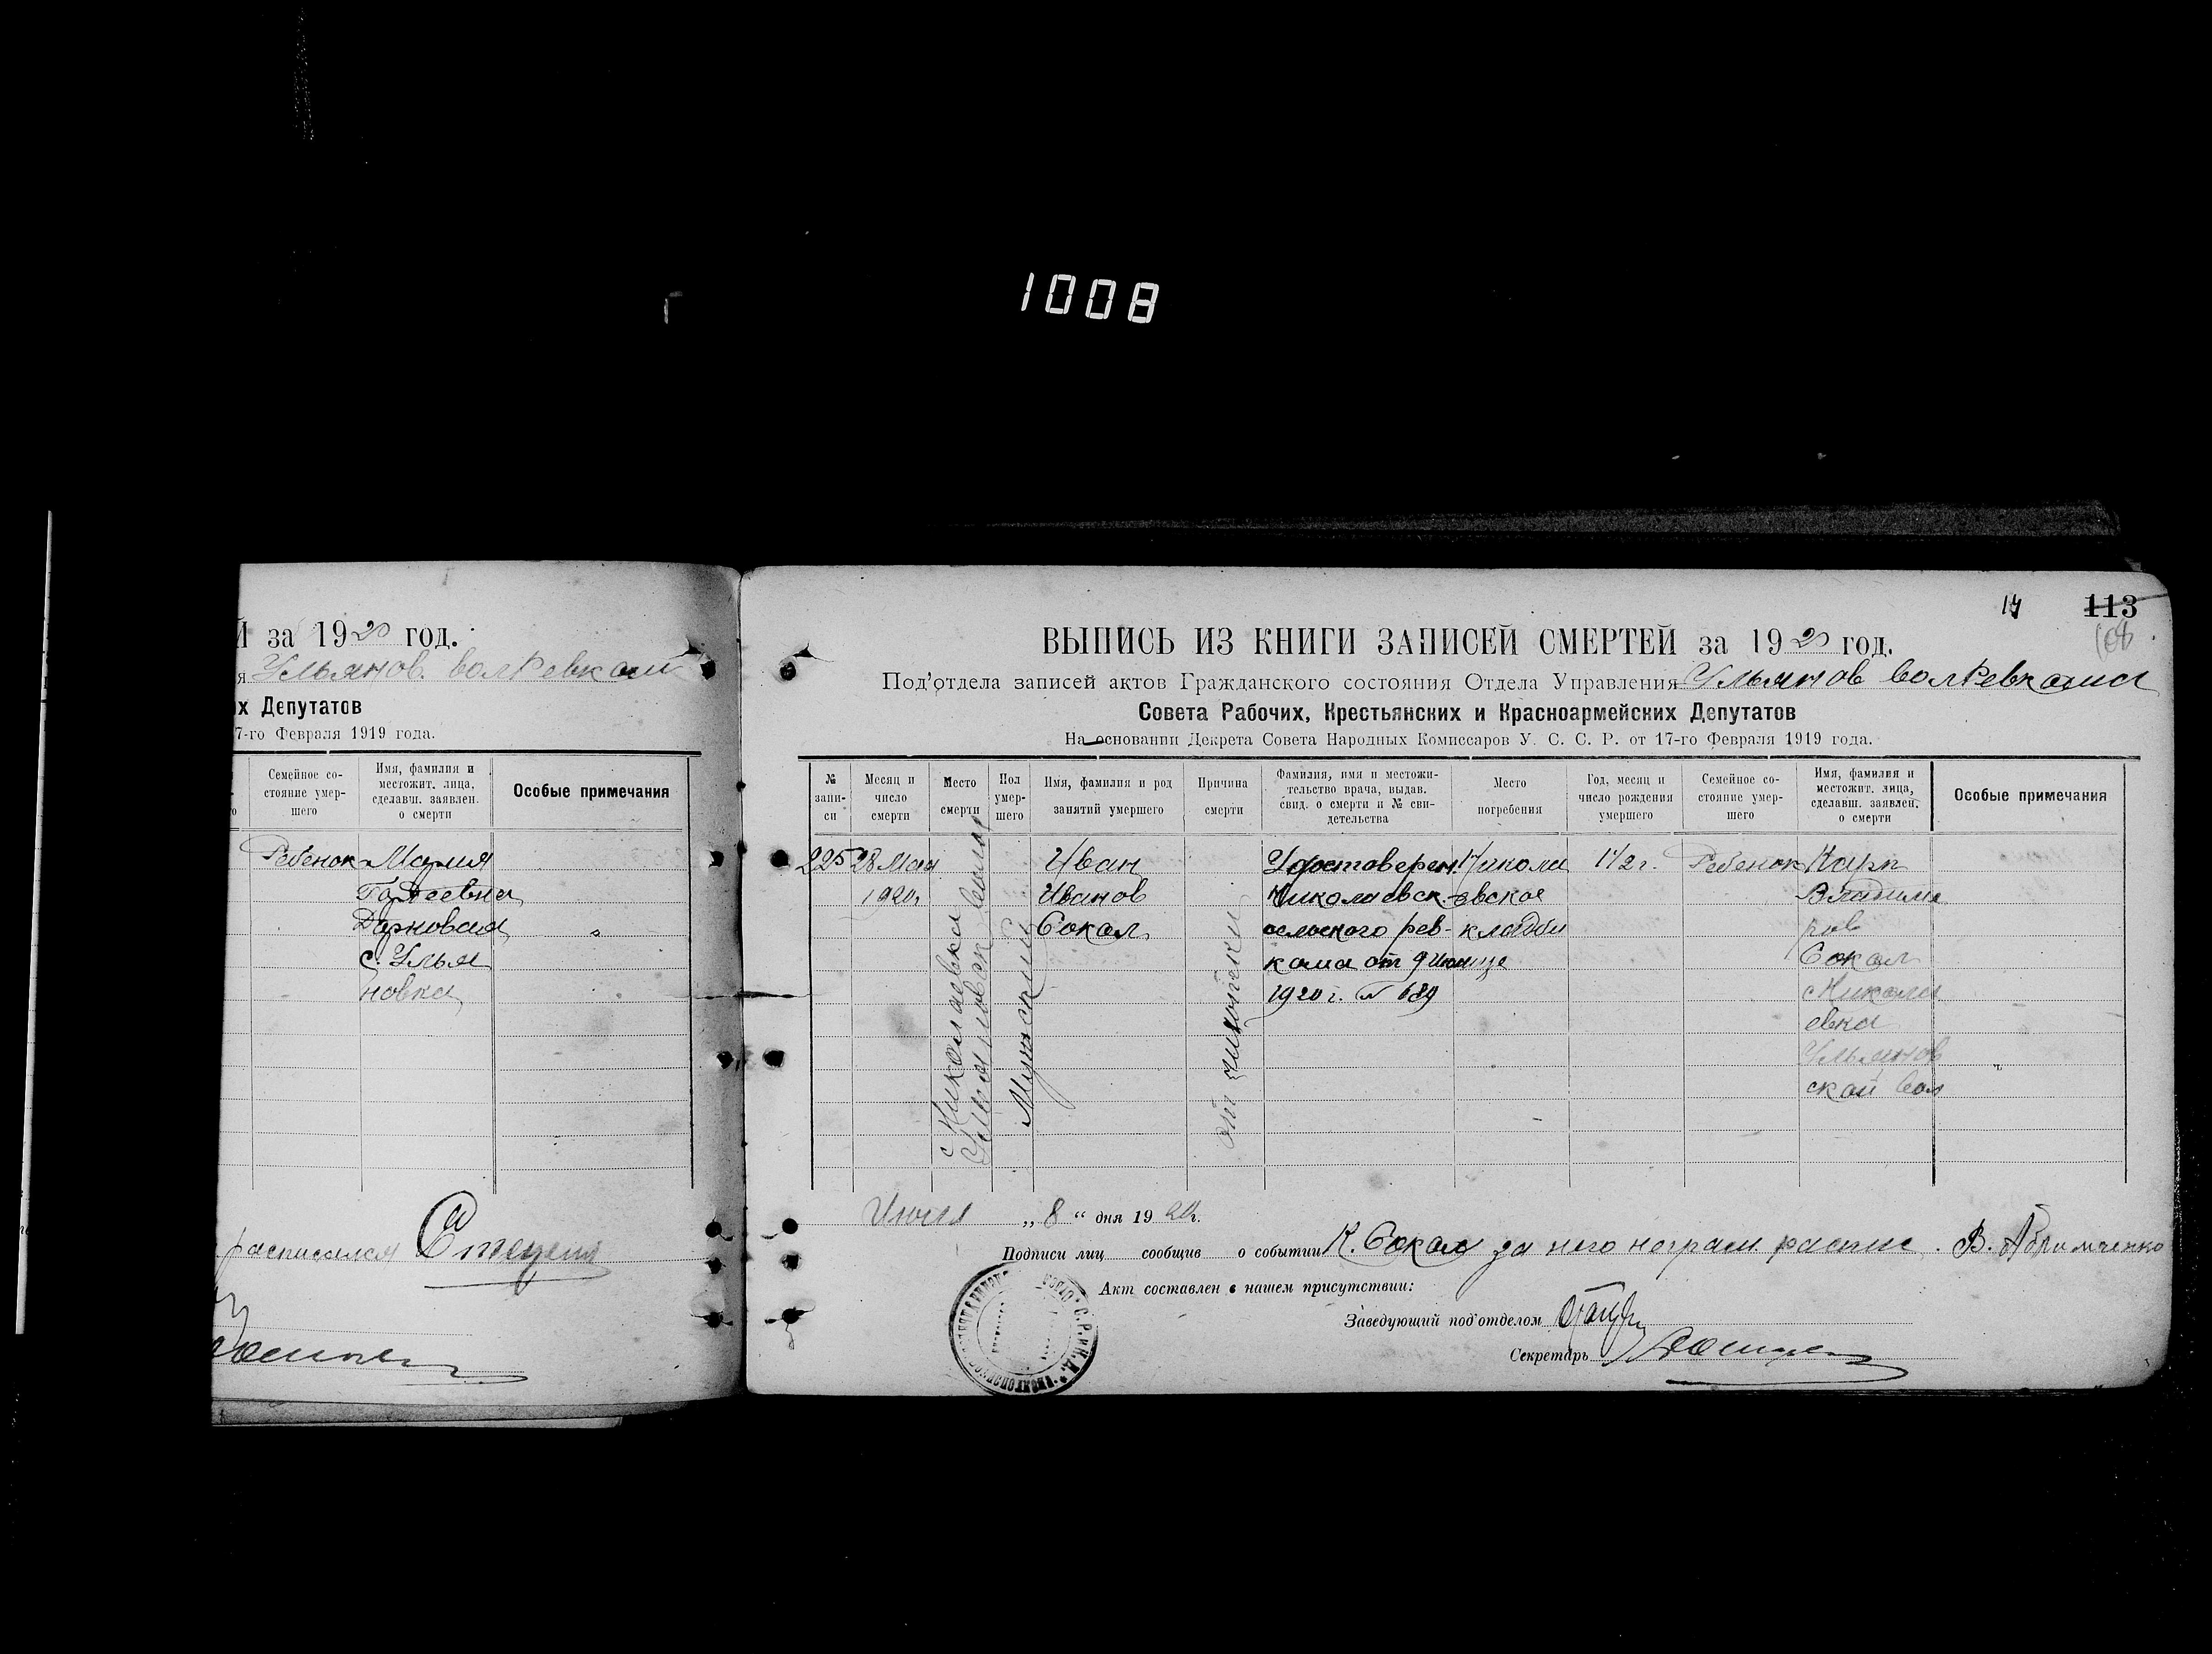 1008
И за 1920 год.
я Ульянов. волРевком
х Депутатов
7-го Февраля 1919 года.
Семейное со-
стояние умер-
шего
Имя, фамилия и
местожит. лица,
сделавш. заявлен.
о смерти
Особые примечания
Ребенок
Мария
с. Улья
новка
расписался
14 113
108
ВЫПИСЬ ИЗ КНИГИ ЗАПИСЕЙ СМЕРТЕЙ за 1920 год.
Под'отдела записей актов Гражданского состояния Отдела Управления Ульянов волРевкома
Совета Рабочих, Крестьянских и Красноармейских Депутатов
На основании Декрета Совета Народных Комиссаров У. С. С. Р. от 17-го Февраля 1919 года.
№
запи-
си
Месяц и
число
смерти
Место
смерти
Пол
умер-
шего
Имя, фамилия и род
занятий умершего
Причина
смерти
Фамилия, имя и местожи-
тельство врача, выдав.
свид. о смерти и № сви-
детельства
Место
погребения
Год, месяц и
число рождения
умершего
Семейное со-
стояние умер-
шего
Имя, фамилия и
местожит. лица,
сделавш. заявлен.
о смерти
Особые примечания
225
28 Мая
1920г
с Николаевка
Ульяновск волос
Мужской
Иван
Иванов
Сокол
от
Удостоверен.
Николаевск.
сельского рев-
кома от 9 Июня
1920 г. № 689
Никола
евское
кладби
ще
1 1/2 г.
Ребенок
Карп
Владими
ров
Сокол
с Никола
евка
Ульянов
ской вол
Июня „8“ дня 1920г.
Подписи лиц сообщив о событии К. Сокол за него неграм. распис. В. Абрамченко
Акт составлен в нашем присутствии:
Заведующий под'отделом
Секретарь